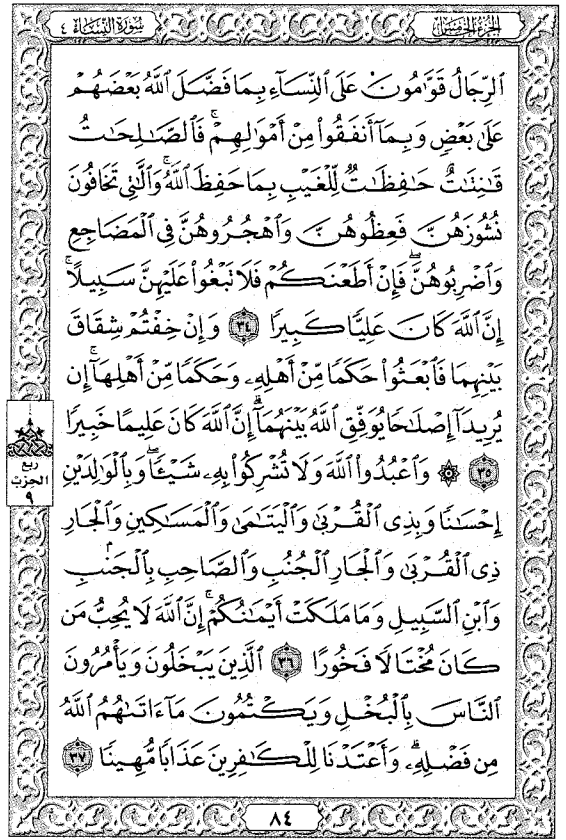 سُورَةُ النِّسَاءِ ٤
الجُزْءُ الخَامِسُ
ٱلرِّجَالُ قَوَّٰمُونَ عَلَى ٱلنِّسَآءِ بِمَا فَضَّلَ ٱللَّهُ بَعْضَهُمْ
عَلَىٰ بَعْضٍ وَبِمَآ أَنفَقُوا۟ مِنْ أَمْوَٰلِهِمْ ۚ فَٱلصَّٰلِحَٰتُ
قَٰنِتَٰتٌ حَٰفِظَٰتٌ لِّلْغَيْبِ بِمَا حَفِظَ ٱللَّهُ ۚ وَٱلَّٰتِى تَخَافُونَ
نُشُوزَهُنَّ فَعِظُوهُنَّ وَٱهْجُرُوهُنَّ فِى ٱلْمَضَاجِعِ
وَٱضْرِبُوهُنَّ ۖ فَإِنْ أَطَعْنَكُمْ فَلَا تَبْغُوا۟ عَلَيْهِنَّ سَبِيلًا ۗ
إِنَّ ٱللَّهَ كَانَ عَلِيًّا كَبِيرًا ٣٤ وَإِنْ خِفْتُمْ شِقَاقَ
بَيْنِهِمَا فَٱبْعَثُوا۟ حَكَمًا مِّنْ أَهْلِهِۦ وَحَكَمًا مِّنْ أَهْلِهَآ إِن
يُرِيدَآ إِصْلَٰحًا يُوَفِّقِ ٱللَّهُ بَيْنَهُمَآ ۗ إِنَّ ٱللَّهَ كَانَ عَلِيمًا خَبِيرًا
٣٥ ۞ وَٱعْبُدُوا۟ ٱللَّهَ وَلَا تُشْرِكُوا۟ بِهِۦ شَيْـًٔا ۖ وَبِٱلْوَٰلِدَيْنِ
إِحْسَٰنًا وَبِذِى ٱلْقُرْبَىٰ وَٱلْيَتَٰمَىٰ وَٱلْمَسَٰكِينِ وَٱلْجَارِ
ذِى ٱلْقُرْبَىٰ وَٱلْجَارِ ٱلْجُنُبِ وَٱلصَّاحِبِ بِٱلْجَنۢبِ
وَٱبْنِ ٱلسَّبِيلِ وَمَا مَلَكَتْ أَيْمَٰنُكُمْ ۗ إِنَّ ٱللَّهَ لَا يُحِبُّ مَن
كَانَ مُخْتَالًا فَخُورًا ٣٦ ٱلَّذِينَ يَبْخَلُونَ وَيَأْمُرُونَ
ٱلنَّاسَ بِٱلْبُخْلِ وَيَكْتُمُونَ مَآ ءَاتَىٰهُمُ ٱللَّهُ
مِن فَضْلِهِۦ ۗ وَأَعْتَدْنَا لِلْكَٰفِرِينَ عَذَابًا مُّهِينًا ٣٧
ربع
الحزب
٩
٨٤